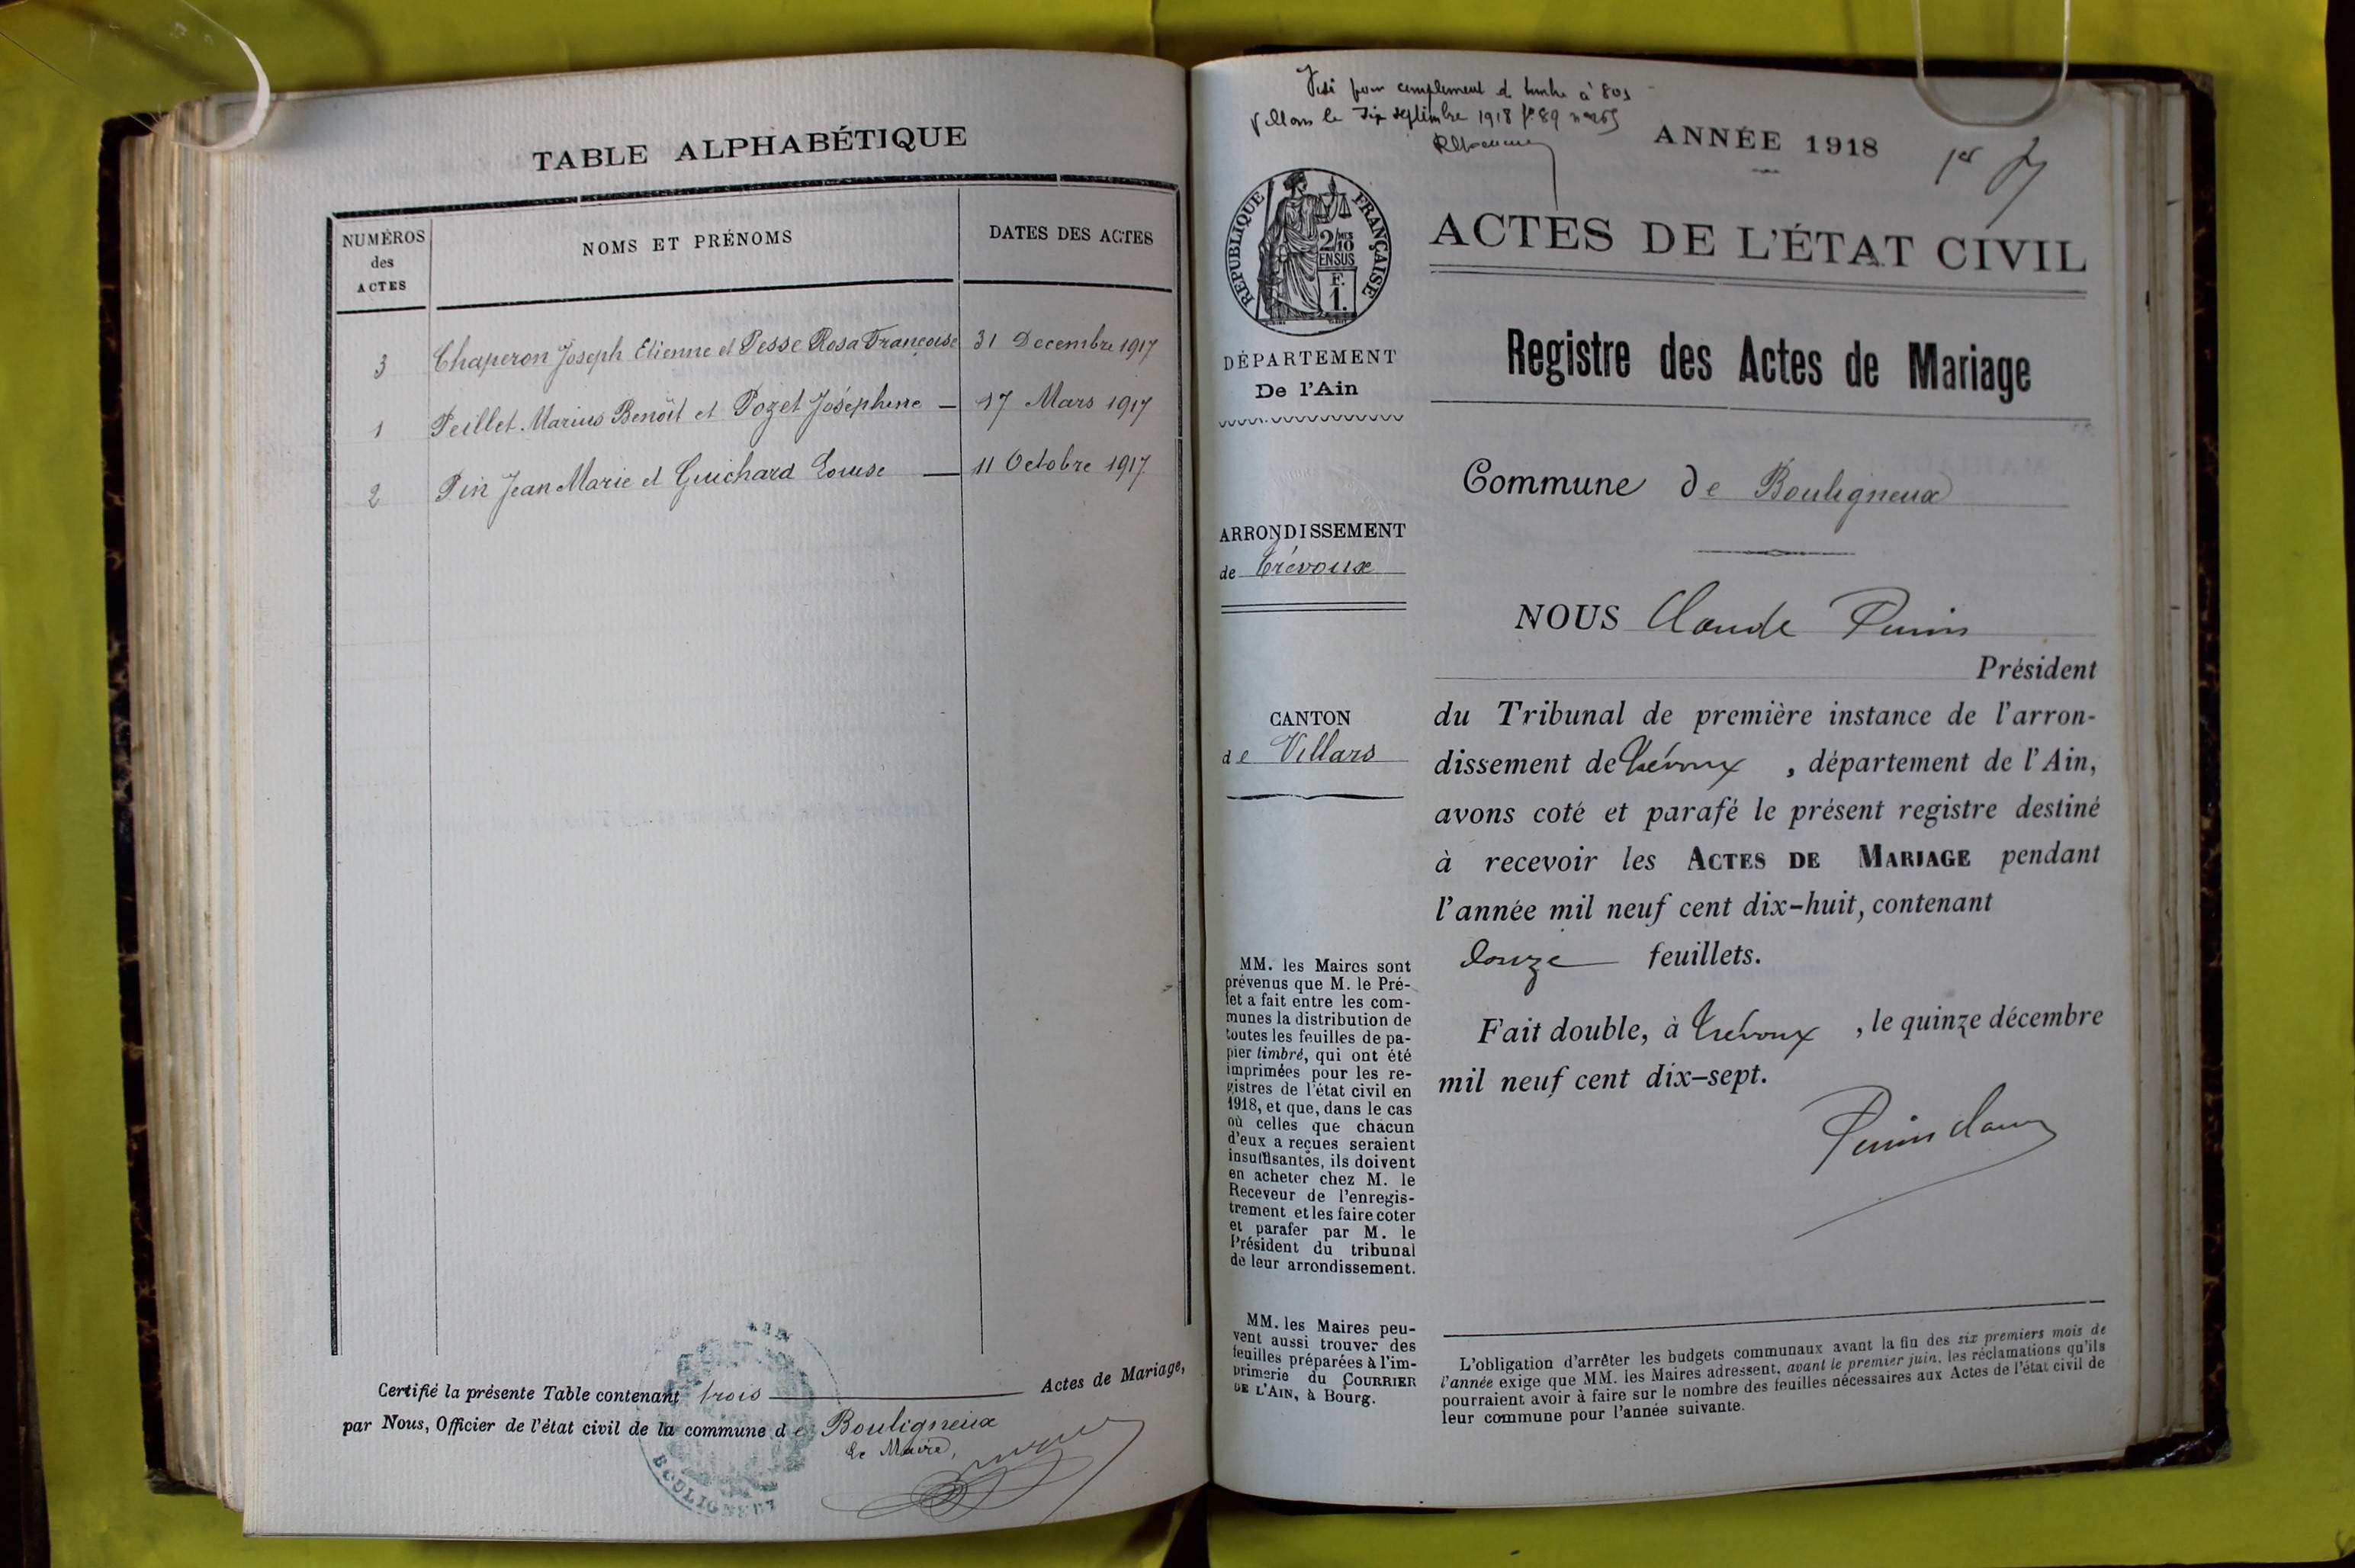 TABLE ALPHABÉTIQUE
NUMÉROS
des
ACTES
NOMS ET PRÉNOMS
DATES DES ACTES
3 Chaperon Joseph Etienne et Pesse Rosa Françoise 31 Decembre 1917
1 Peillet Marius Benoît et Pozet Joséphine — 17 Mars 1917
2 Pin Jean Marie et Guichard Louise — 11 Octobre 1917
Certifié la présente Table contenant trois Actes de Mariage,
par Nous, Officier de l'état civil de la commune de Bouligneux
Le Maire,
BOULIGNEUX
Visé pour complément de timbre à 80
Villars le dix septembre 1918 f° 89
ANNÉE 1918
1er
RÉPUBLIQUE FRANÇAISE
2/10
EN SUS
F.
1.
ACTES DE L'ÉTAT CIVIL
Registre des Actes de Mariage
DÉPARTEMENT
De l'Ain
ARRONDISSEMENT
de Trévoux
CANTON
de Villars
MM. les Maires sont
prévenus que M. le Pré-
fet a fait entre les com-
munes la distribution de
toutes les feuilles de pa-
pier timbré, qui ont été
imprimées pour les re-
gistres de l'état civil en
1918, et que, dans le cas
où celles que chacun
d'eux a reçues seraient
insuffisantes, ils doivent
en acheter chez M. le
Receveur de l'enregis-
trement et les faire coter
et parafer par M. le
Président du tribunal
de leur arrondissement.
MM. les Maires peu-
vent aussi trouver des
feuilles préparées à l'im-
primerie du COURRIER
DE L'AIN, à Bourg.
Commune de Bouligneux
NOUS Claude
Président
du Tribunal de première instance de l'arron-
dissement de Trévoux, département de l'Ain,
avons coté et parafé le présent registre destiné
à recevoir les ACTES DE MARIAGE pendant
l'année mil neuf cent dix-huit, contenant
douze feuillets.
Fait double, à Trévoux, le quinze décembre
mil neuf cent dix-sept.
L'obligation d'arrêter les budgets communaux avant la fin des six premiers mois de
l'année exige que MM. les Maires adressent, avant le premier juin, les réclamations qu'ils
pourraient avoir à faire sur le nombre des feuilles nécessaires aux Actes de l'état civil de
leur commune pour l'année suivante.